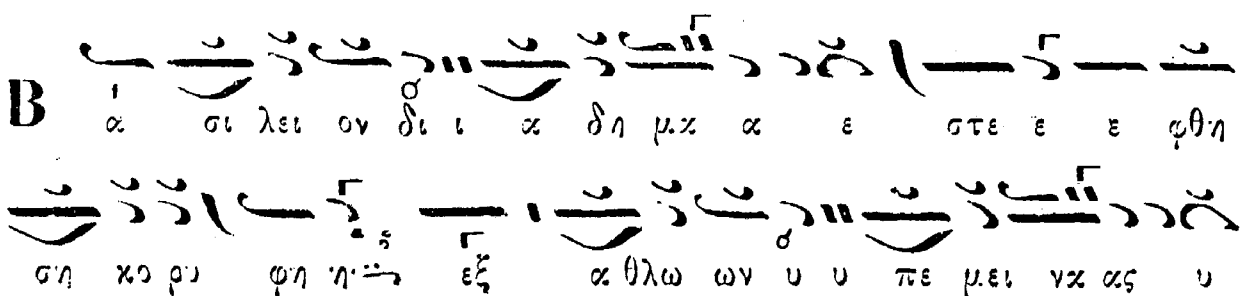 Β α σι λει ον δι ι α δη μα α ε στε ε ε φθη
ση κο ρυ φη η εξ α θλω ων υ υ πε μει να ας υ